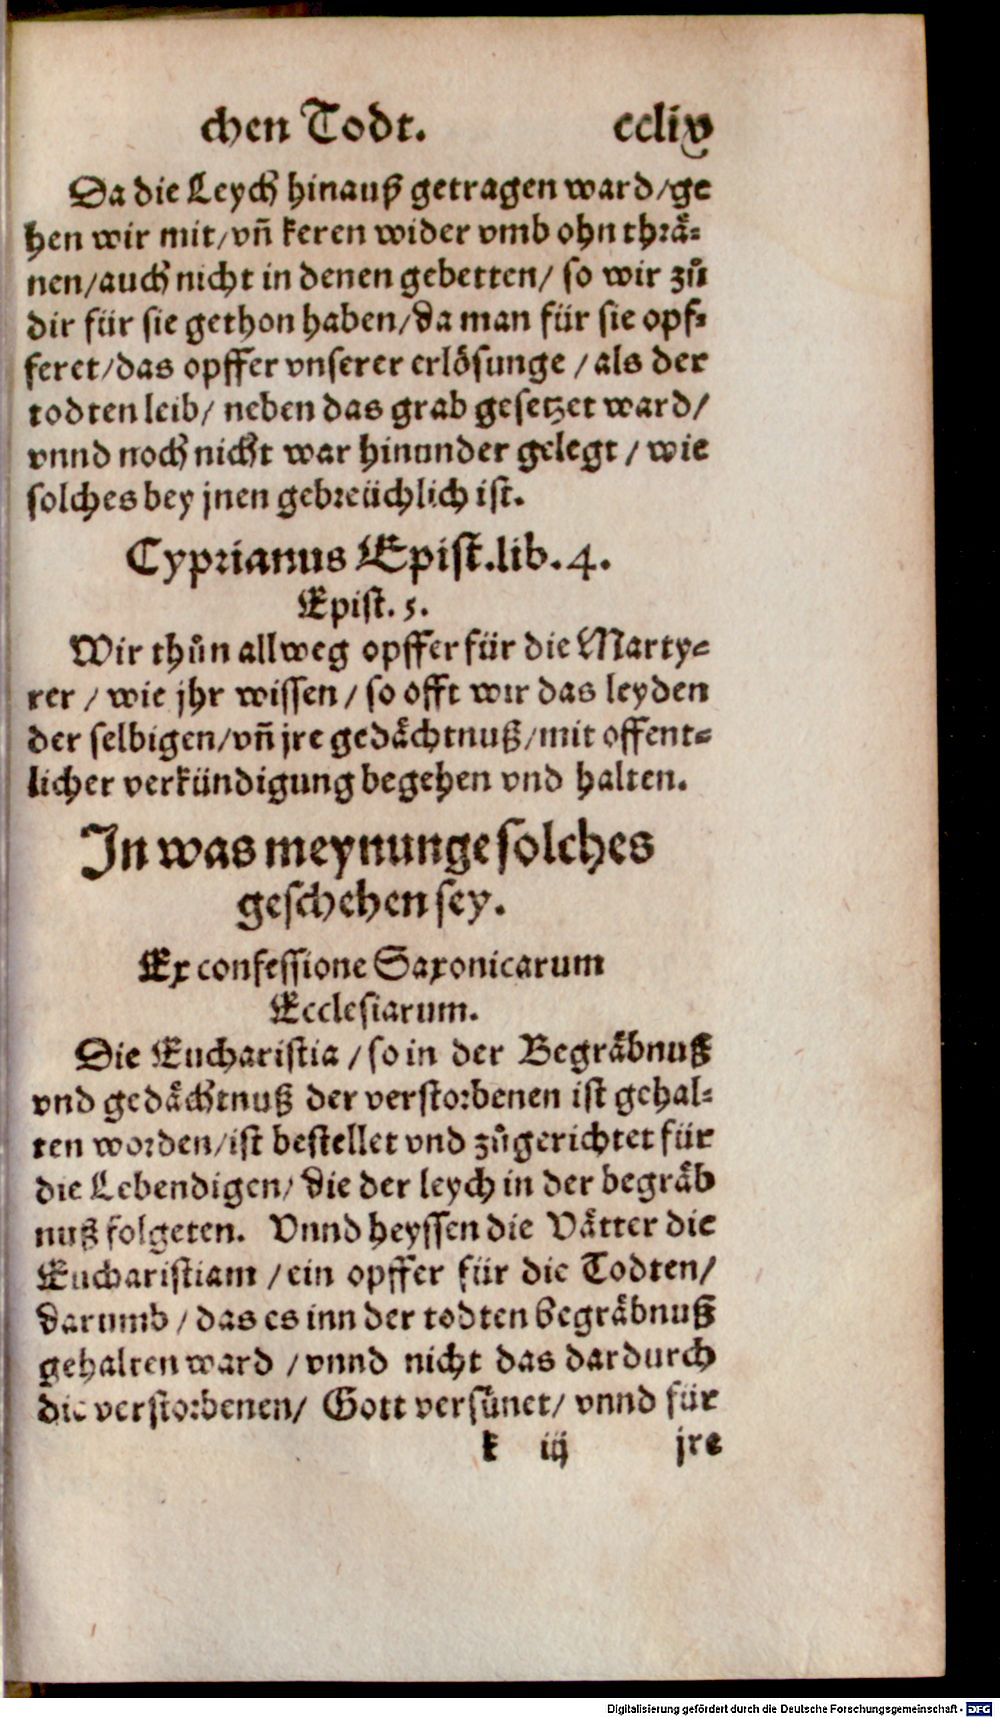 chen Todt. cclix
Da die Leych hinauß getragen ward/ge
hen wir mit/vñ keren wider vmb ohn thrä-
nen/auch nicht in denen gebetten/ so wir zů
dir für sie gethon haben/da man für sie opf-
feret/das opffer vnserer erlösunge /als der
todten leib/ neben das grab gesetzet ward/
vnnd noch nicht war hinunder gelegt / wie
solches bey jnen gebreüchlich ist.
Cyprianus Epist.lib.4.
Epist. 5.
Wir thůn allweg opffer für die Marty-
rer / wie jhr wissen / so offt wir das leyden
der selbigen/vñ jre gedächtnuß/mit offent-
licher verkündigung begehen vnd halten.
In was meynunge solches
geschehen sey.
Ex confessione Saxonicarum
Ecclesiarum.
Die Eucharistia /so in der Begräbnuß
vnd gedächtnuß der verstorbenen ist gehal-
ten worden/ist bestellet vnd zůgerichtet für
die Lebendigen/ die der leych in der begräb
nuß folgeten. Vnnd heyssen die Vätter die
Eucharistiam /ein opffer für die Todten/
darumb / das es inn der todten begräbnuß
gehalten ward /vnnd nicht das dardurch
die verstorbenen/ Gott versünet/ vnnd für
k iij jre
Digitalisierung gefördert durch die Deutsche Forschungsgemeinschaft - DFG